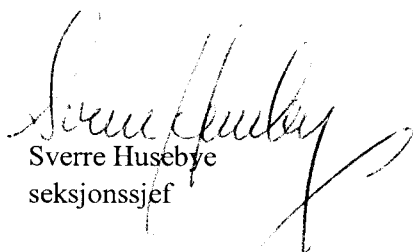 Sverre Husebye
Sverre Husebye
seksjonssjef